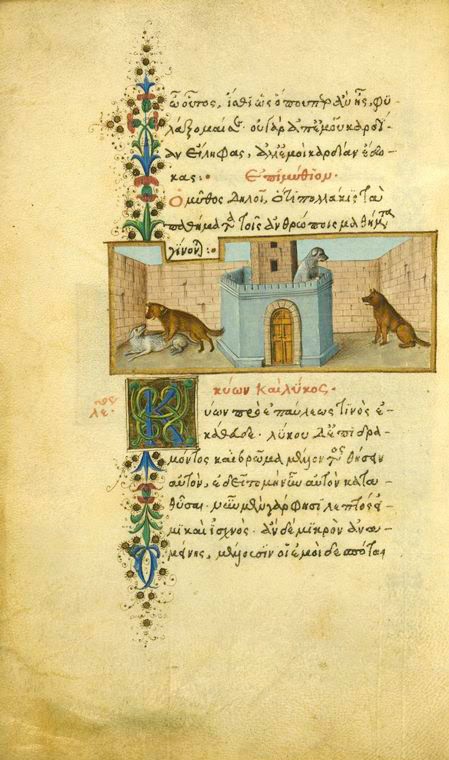 ὦ οὗτος, ἴσθι ὡς ὅπου περ ἂν ᾖς, φυ-
λάξομαί σε· οὐ γὰρ ἀπ' ἐμοῦ καρδί-
αν εἴληφας, ἀλλ' ἐμοὶ καρδίαν ἔδω-
κας: Ἐπιμύθιον.
Ὁ μῦθος δηλοῖ, ὅτι πολλάκις τὰ
παθήματα τοῖς ἀνθρώποις μαθήματα
γίνονται:
κύων καὶ λύκος.
λε.
Κύων πρὸ ἐπαύλεως τινὸς ἐ-
κάθευδε. λύκου δ' ἐπιδρα-
μόντος καὶ βρῶμα μέλλοντος θήσειν
αὐτὸν, ἐδεῖτο μὴ νῦν αὐτὸν κατα-
θῦσαι. νῦν μὲν γάρ φησι λεπτός εἰ-
μι καὶ ἰσχνός. ἂν δὲ μικρὸν ἀνα-
μείνης, μέλλουσιν οἱ ἐμοὶ δεσπόται